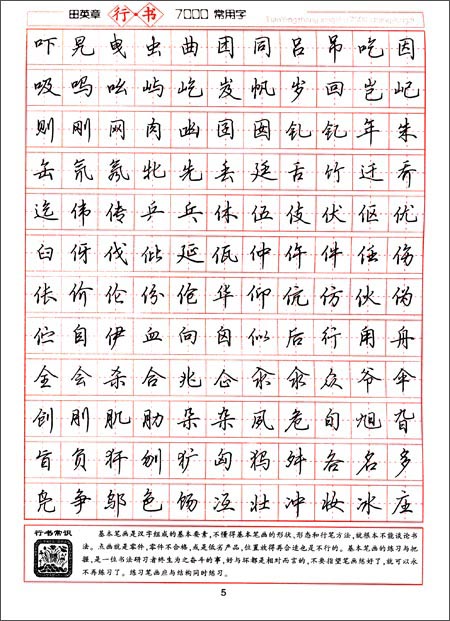 田英章 行·书 7000 常用字
吓旯曳虫曲团同吕吊吃因
吸吗吆屿屹岌帆岁回岂屺
则刚网肉凼囝囡钆钇年朱
缶氘氖牝先丢廷舌竹迁乔
迄伟传乒乓休伍伎伏伛优
臼伢伐仳延佤仲仵件任伤
伥价伦份伧华仰伉仿伙伪
伫自伊血向囟似后行甪舟
全会杀合兆企汆氽众爷伞
创刖肌肋朵杂夙危旬旭旮
旨负犴刎犷匈犸舛各名多
凫争邬色饧冱壮冲妆冰庄
行书常识
基本笔画是汉字组成的基本要素,不懂得基本笔画的形状、形态和行笔方法,就根本不能谈论书
法。点画就是零件,零件不合格,或是低劣产品,位置放得再合适也是不行的。基本笔画的练习与把
握,是一位书法研习者终生为之奋斗的事,好与坏都是相对而言的,不要指望笔画练好了,就可以永
不再练习了。练习笔画应与结构同时练习。
5